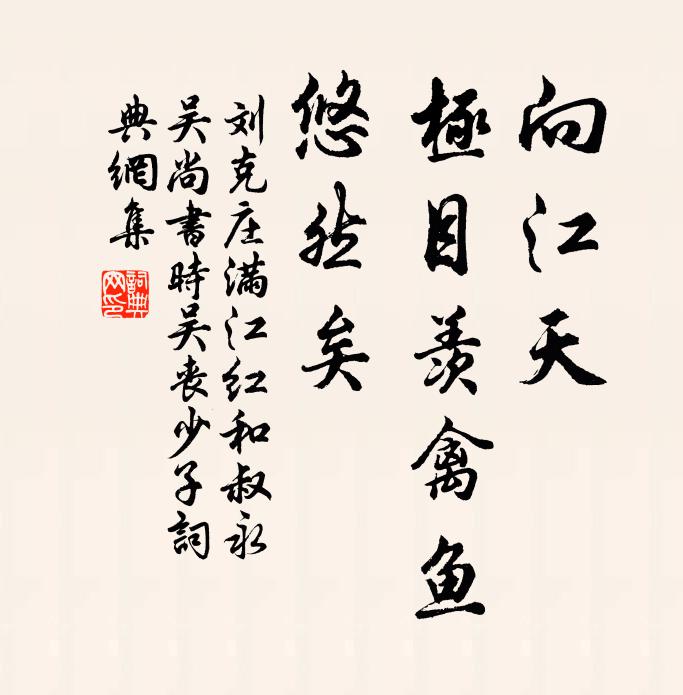 向江天
極目羨禽鱼
悠然矣
刘克庄满江红和叔永
吴尚書時吴丧少子詞
典網集
詞典网印